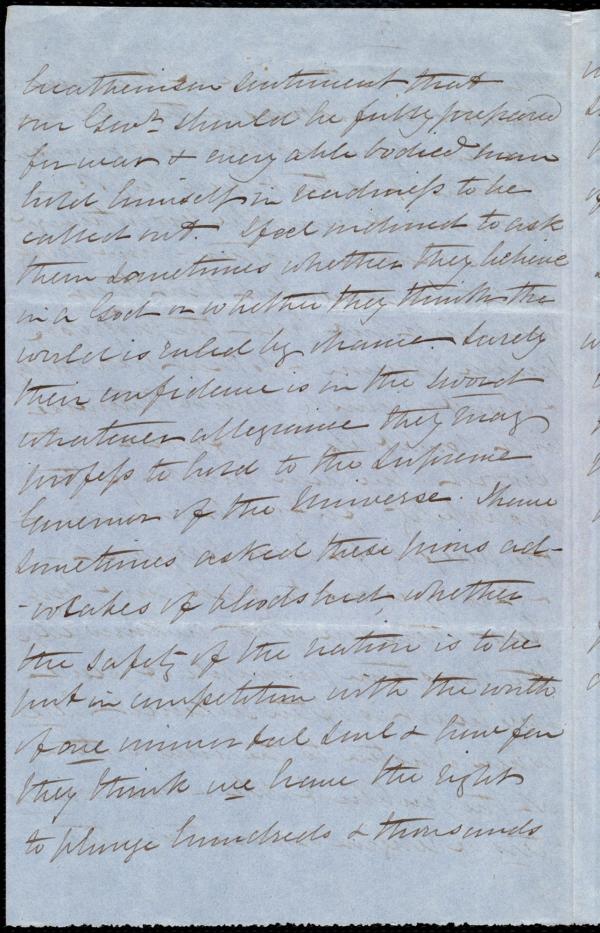 heathenism sentiment that
our Govt. should be fully prepared
for war & every able bodied man
hold himself in readiness to be
called out. I feel inclined to ask
them sometimes whether they believe
in a God or whether they think the
world is ruled by chance. Surely
their confidence is in the sword
whatever allegiance they may
profess to hold to the Supreme
Governor of the Universe. I have
sometimes asked these pious ad-
-vocates of bloodshed, whether
the safety of the nation is to be
put in competition with the worth
of one immortal soul & how far
they think we have the right
to plunge hundreds & thousands